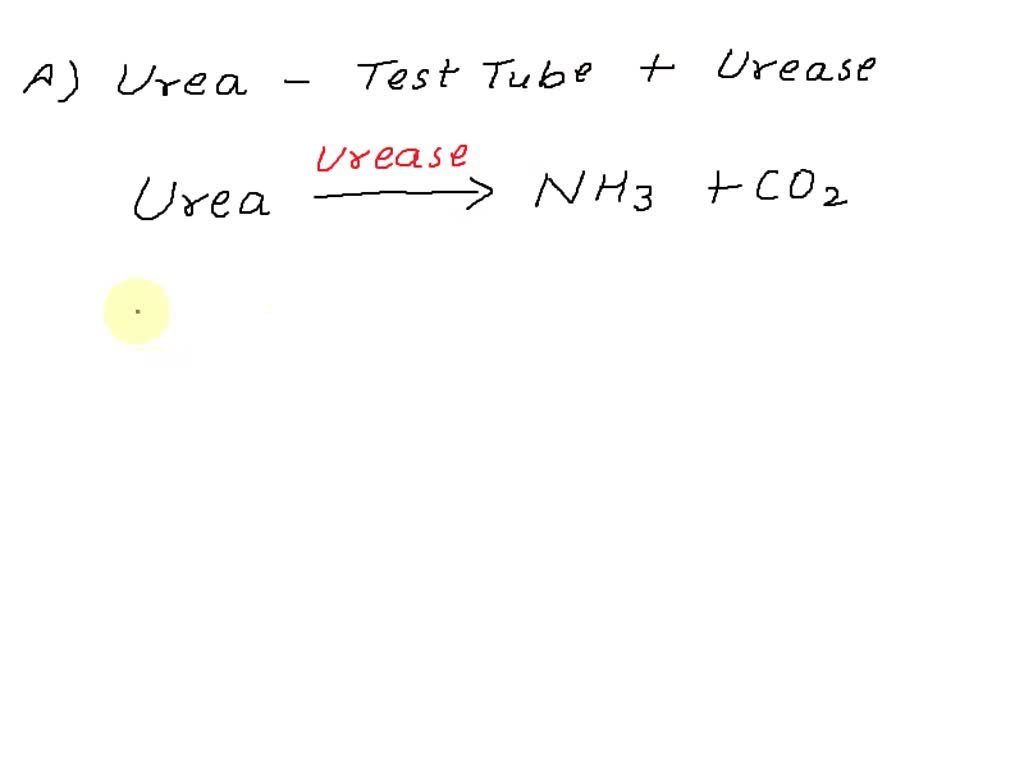 A) Urea - Test Tube + Urease
Urease
Urea ⟶ NH3 + CO2